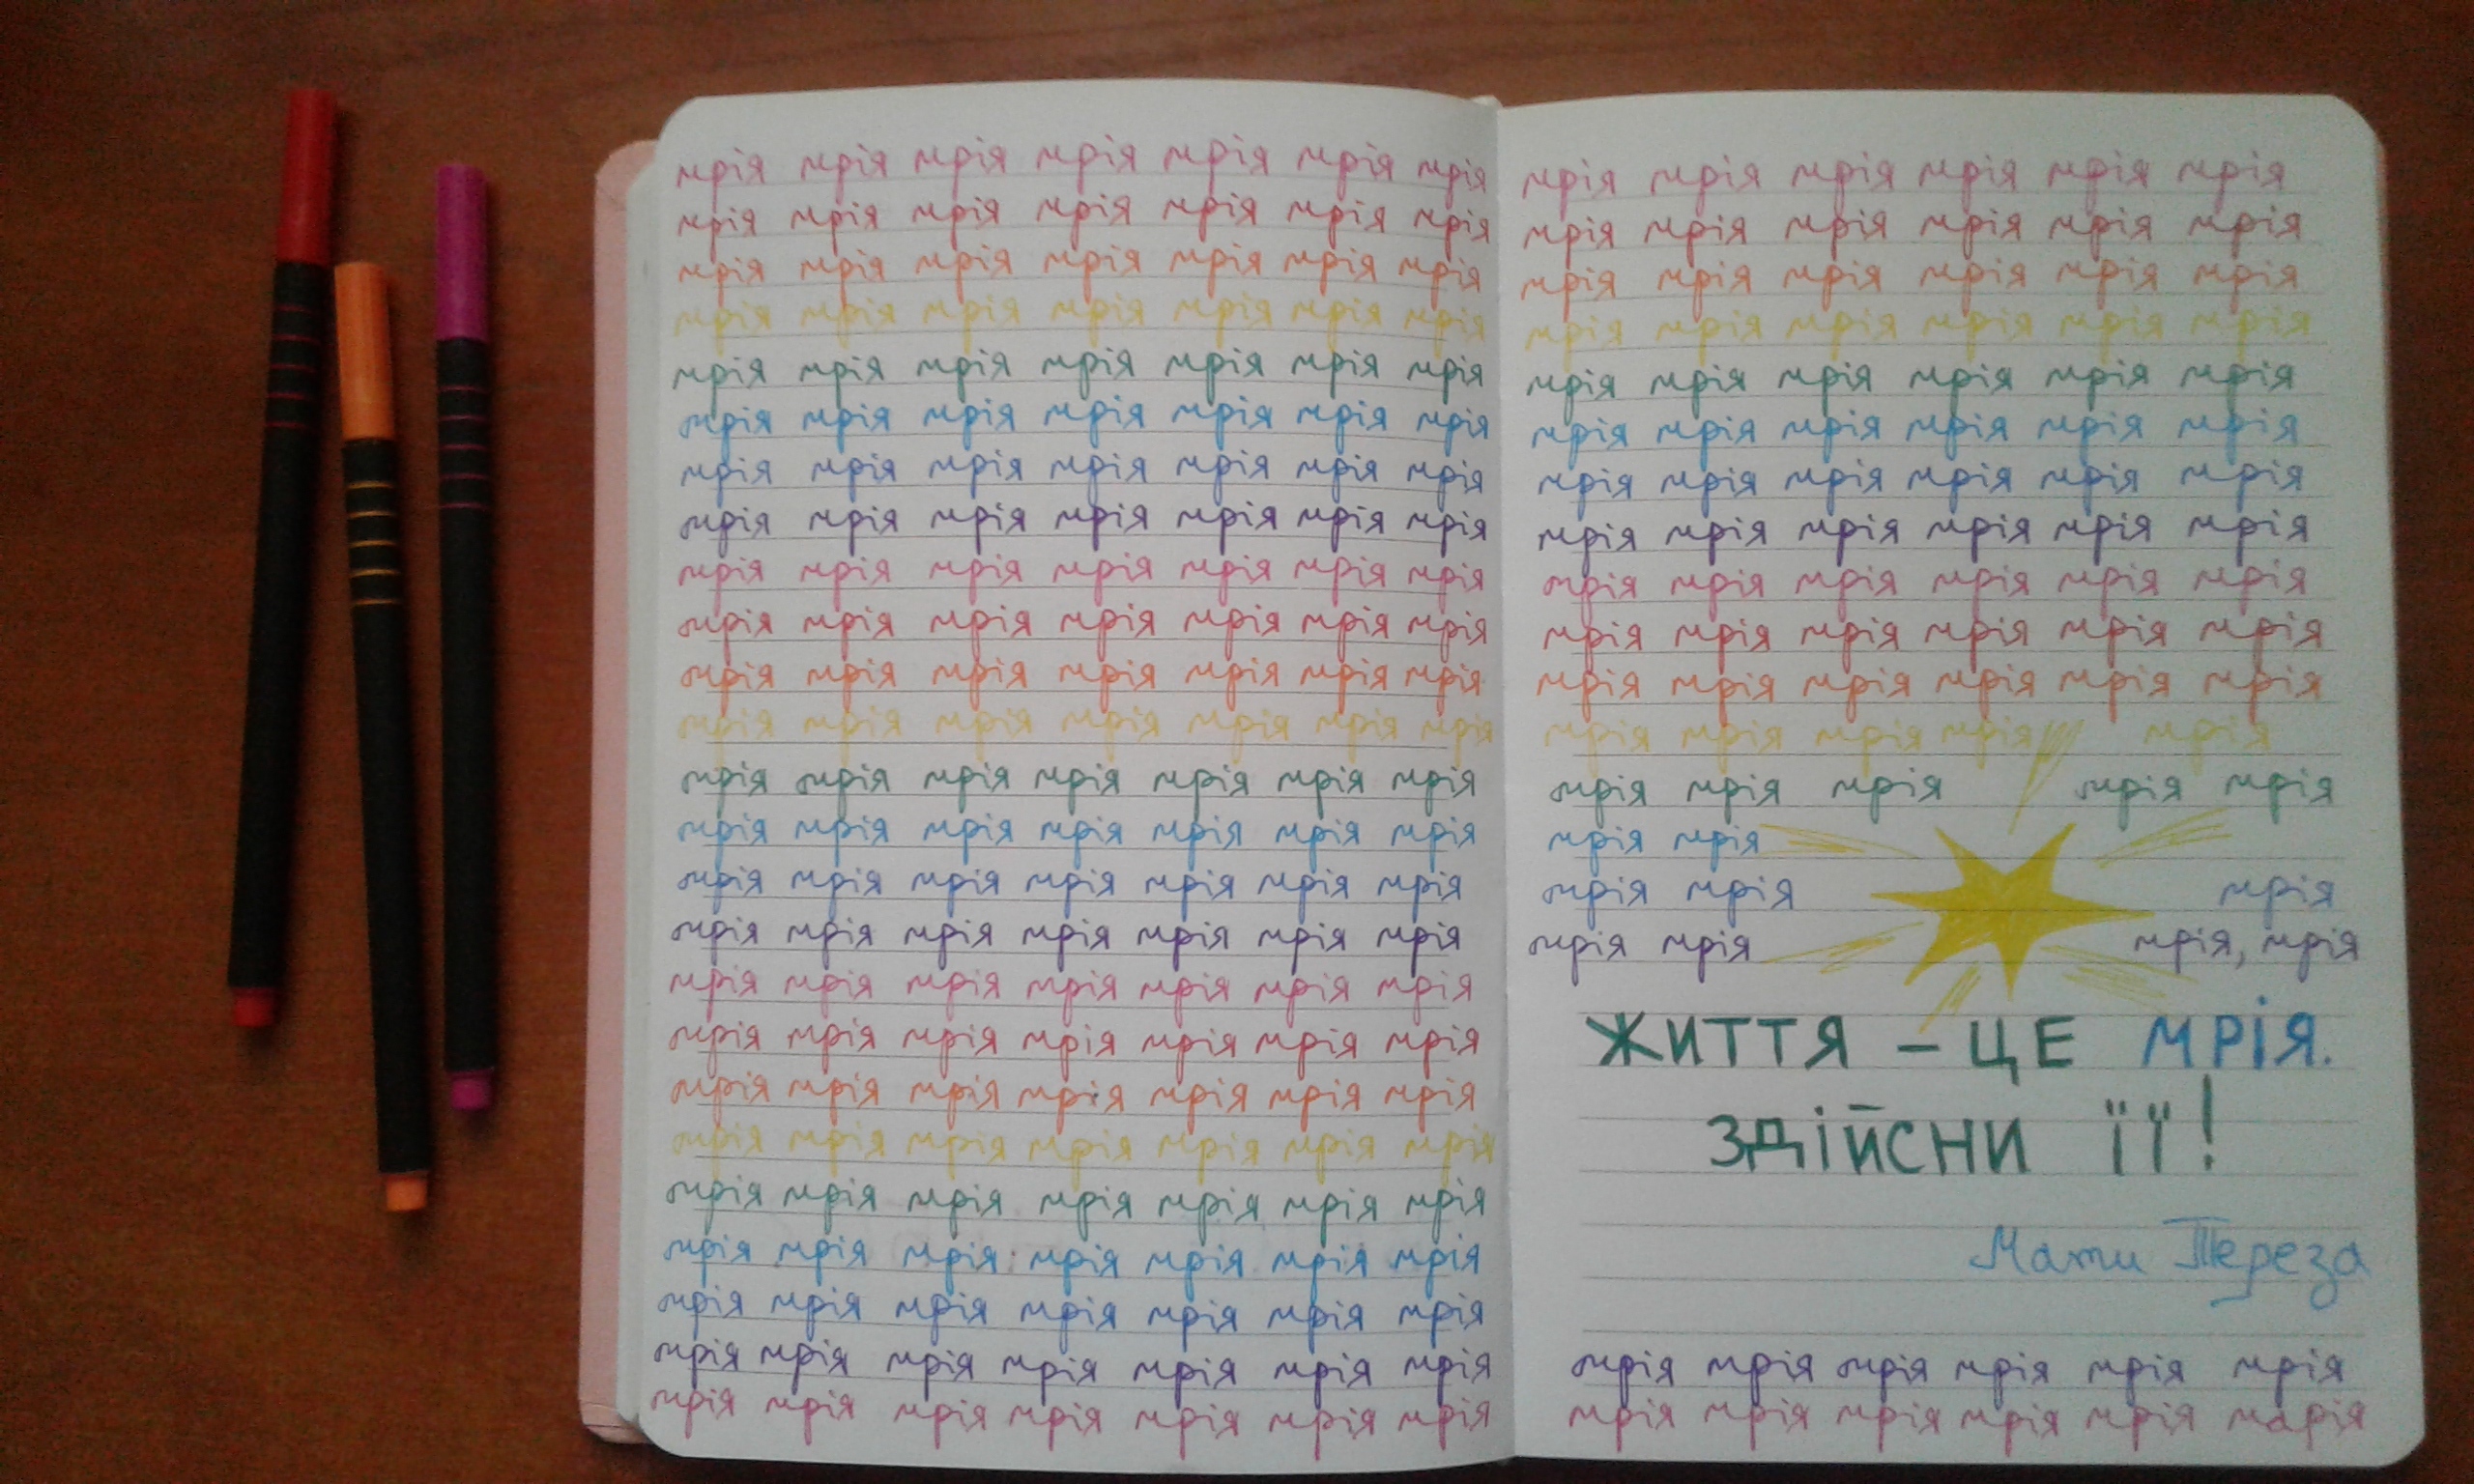 мрія мрія мрія мрія мрія мрія мрія
мрія мрія мрія мрія мрія мрія мрія
мрія мрія мрія мрія мрія мрія мрія
мрія мрія мрія мрія мрія мрія мрія
мрія мрія мрія мрія мрія мрія мрія
мрія мрія мрія мрія мрія мрія мрія
мрія мрія мрія мрія мрія мрія мрія
мрія мрія мрія мрія мрія мрія мрія
мрія мрія мрія мрія мрія мрія мрія
мрія мрія мрія мрія мрія мрія мрія
мрія мрія мрія мрія мрія мрія мрія
мрія мрія мрія мрія мрія мрія мрія
мрія мрія мрія мрія мрія мрія мрія
мрія мрія мрія мрія мрія мрія мрія
мрія мрія мрія мрія мрія мрія мрія
мрія мрія мрія мрія мрія мрія мрія
мрія мрія мрія мрія мрія мрія мрія
мрія мрія мрія мрія мрія мрія мрія
мрія мрія мрія мрія мрія мрія мрія
мрія мрія мрія мрія мрія мрія мрія
мрія мрія мрія мрія мрія мрія мрія
мрія мрія мрія мрія мрія мрія мрія
мрія мрія мрія мрія мрія мрія мрія
мрія мрія мрія мрія мрія мрія мрія
мрія мрія мрія мрія мрія мрія мрія
мрія мрія мрія мрія мрія мрія
мрія мрія мрія мрія мрія мрія
мрія мрія мрія мрія мрія мрія
мрія мрія мрія мрія мрія мрія
мрія мрія мрія мрія мрія мрія
мрія мрія мрія мрія мрія мрія
мрія мрія мрія мрія мрія мрія
мрія мрія мрія мрія мрія мрія
мрія мрія мрія мрія мрія мрія
мрія мрія мрія мрія мрія мрія
мрія мрія мрія мрія мрія мрія
мрія мрія мрія мрія мрія
мрія мрія мрія мрія мрія
мрія мрія
мрія мрія мрія
мрія мрія мрія, мрія
ЖИТТЯ – ЦЕ МРІЯ.
ЗДІЙСНИ ЇЇ!
Мати Тереза
мрія мрія мрія мрія мрія мрія
мрія мрія мрія мрія мрія марія